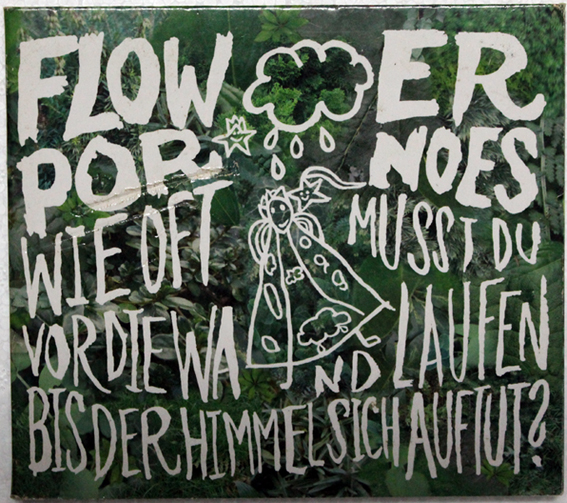 FLOWER
PORNOES
WIE OFT MUSST DU
VOR DIE WAND LAUFEN
BIS DER HIMMEL SICH AUFTUT?